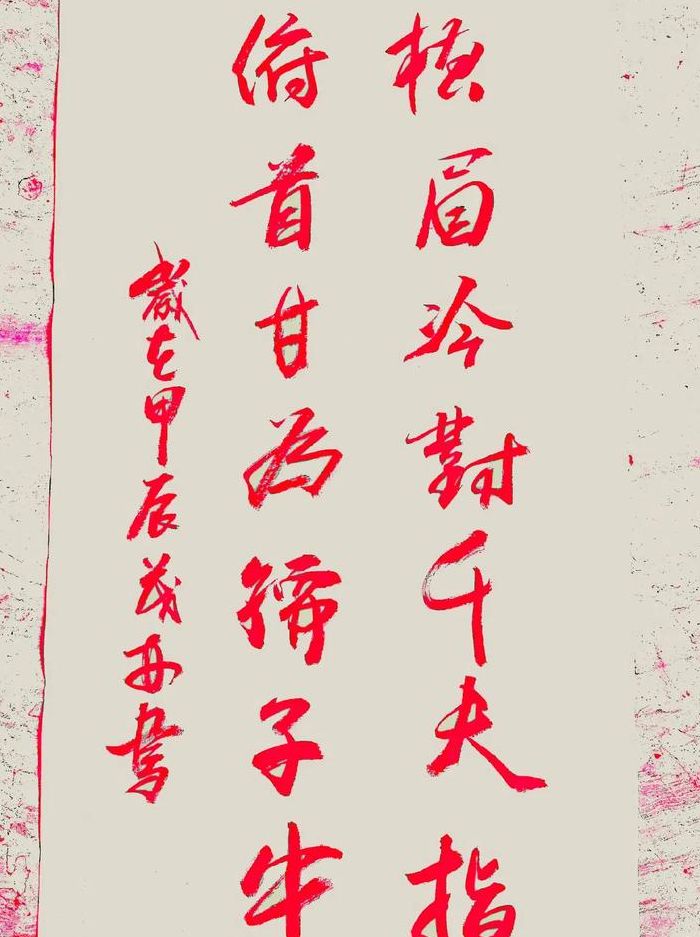 橫眉冷對千夫指
俯首甘為孺子牛
歲在甲辰茂書